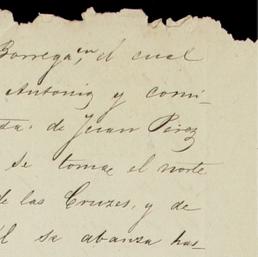 Borrega, en el cual
Antonia y comi-
sta: de Juan Pérez
se toma el norte
de las Cruzes, y de
él se abanza has-